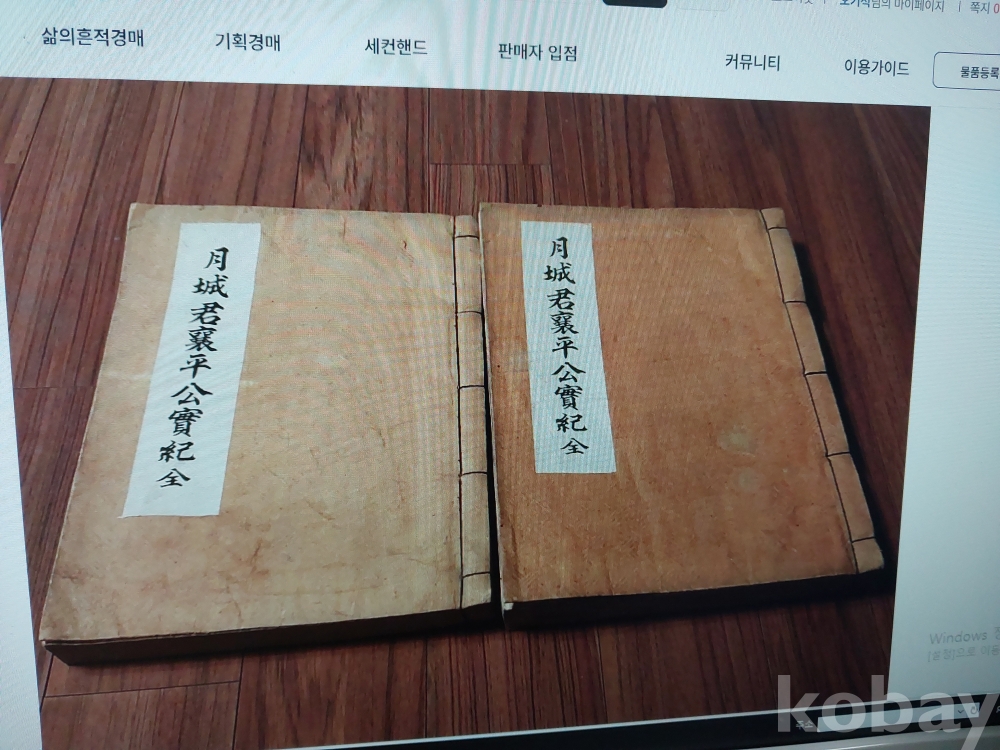 님의 마이페이지 | 쪽지 0
삶의흔적경매 기획경매 세컨핸드 판매자 입점 커뮤니티 이용가이드 물품등록
月城君襄平公實紀全
月城君襄平公實紀全
Windows
kobay